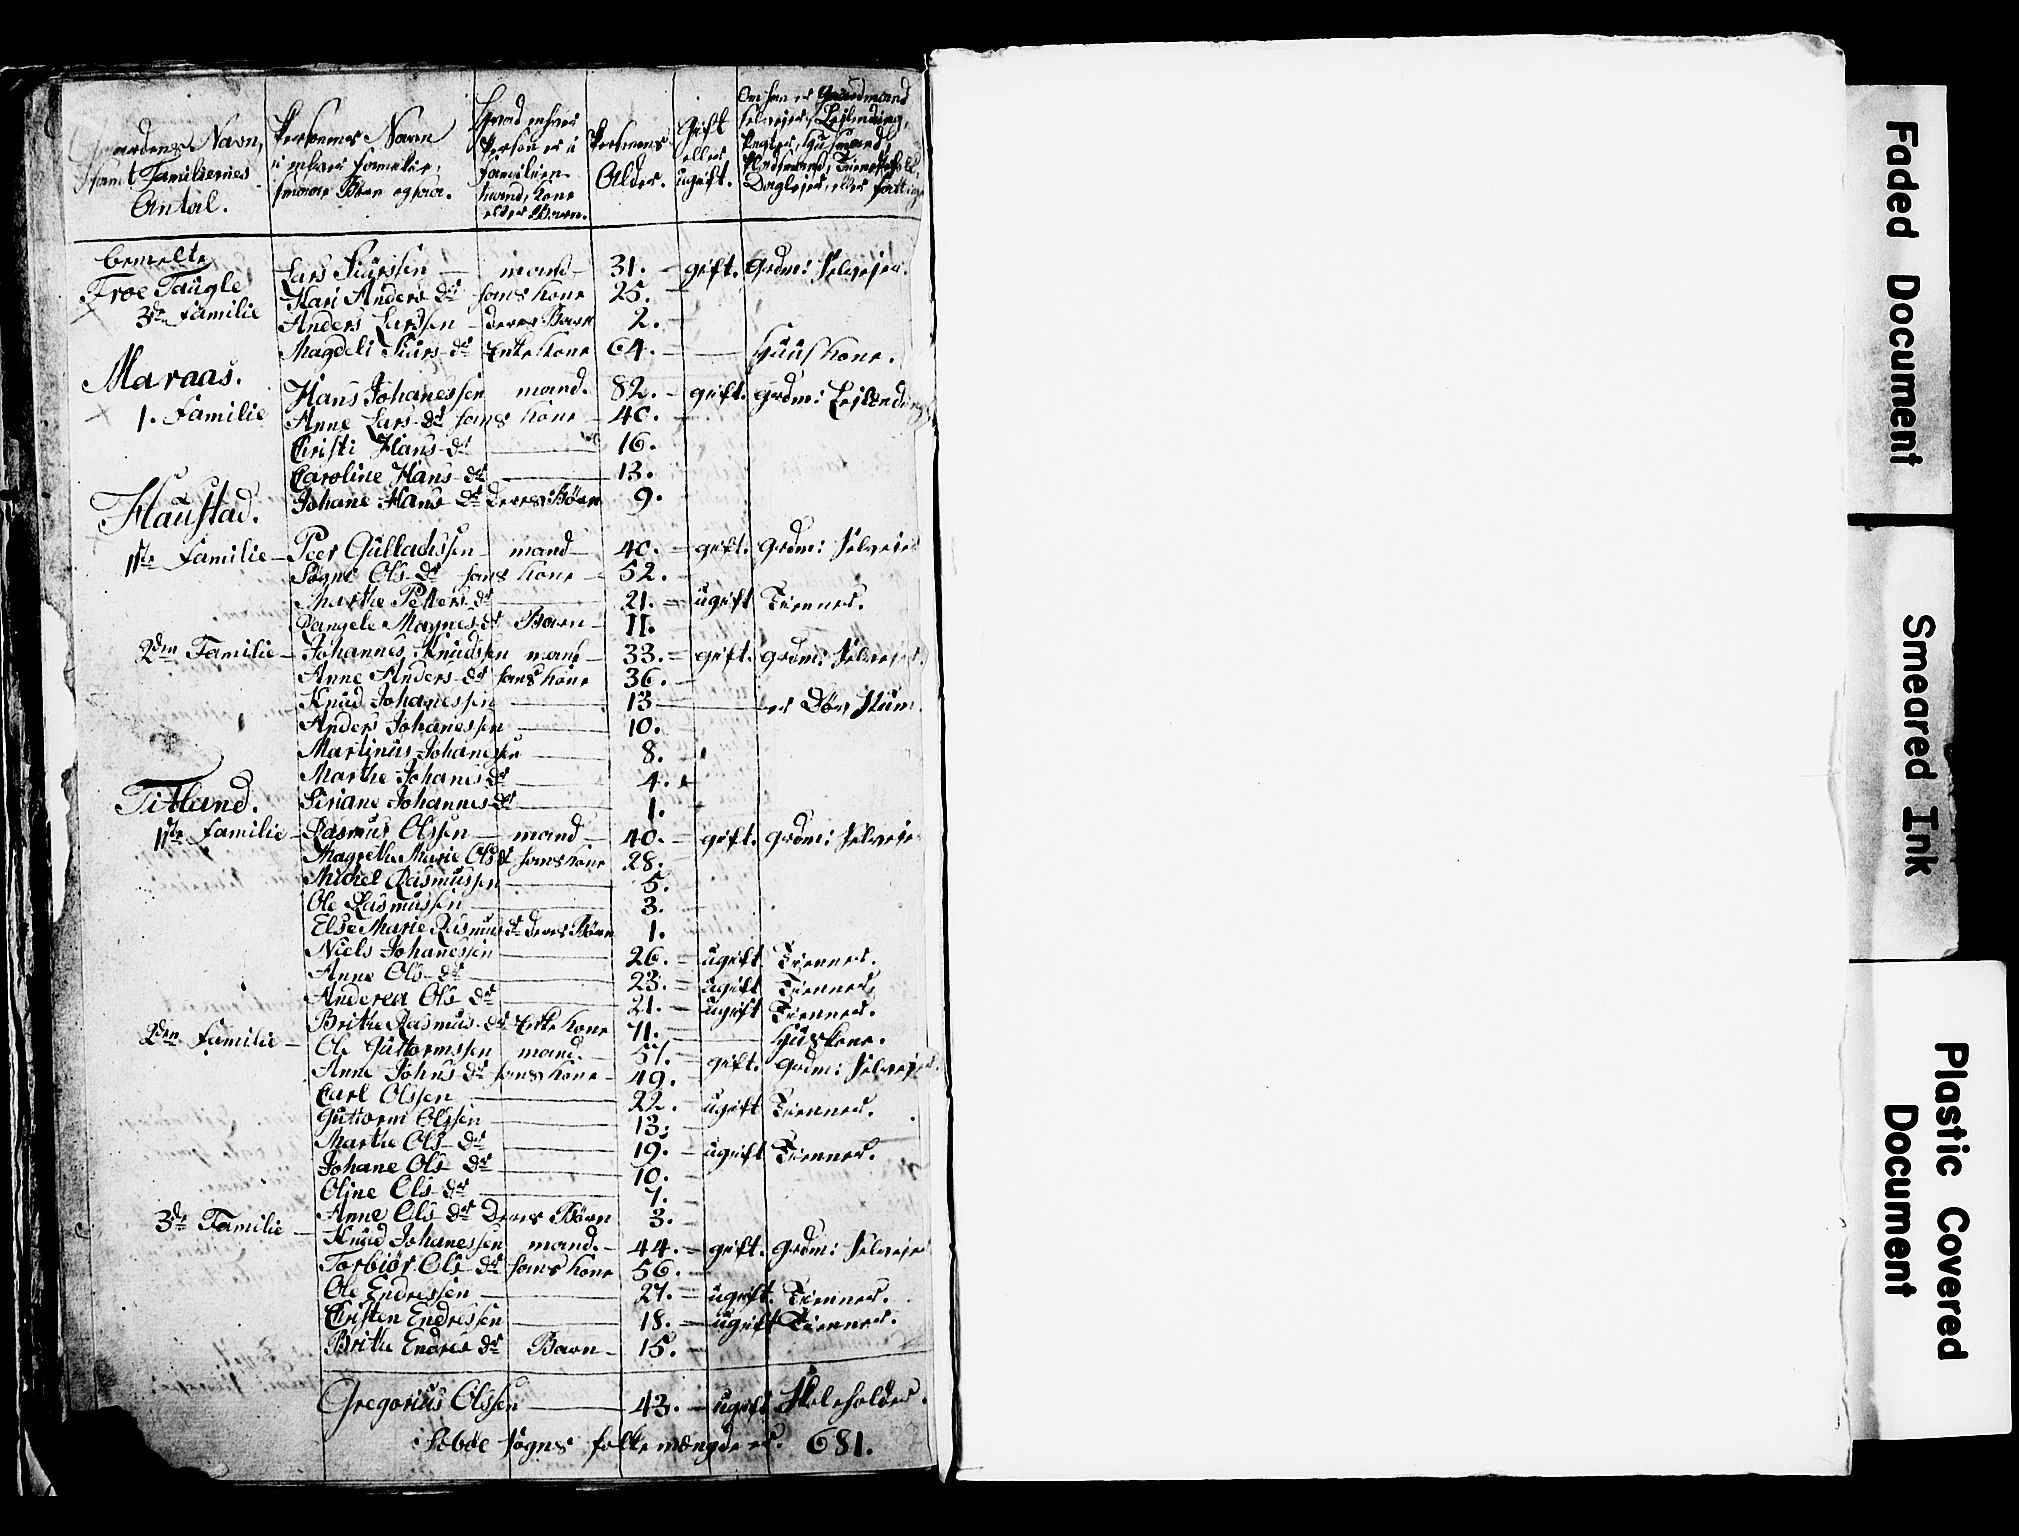 Gaardens Navn, samt Familiernes Antal.
Personens Navn i enhver familie, smaae Børn ogsaa.
Hvad enhver Person er i familien mand, Kone eller Barn.
Personens Alder.
Gift eller ugift.
Om han er Gaardmand Selveier, Leilænding, Husmand, Pladsmand, Dagleier, eller fattig
bemelte
Froe Taugle Lars Siurssen — mand — 31. — gift. Grdm: Selveier.
3de Familie Kari Anders Dr hans Kone 25.
Anders Larssen — deres Barn 2.
Magdeli Siurs Dr Enke Kone 64. — Huuskone.
Maraas.
1. Familie Hans Johanessen mand. 82. — gift. grdm: Leilænding
Anne Lars Dr hans Kone — 40.
Christi Hans Dr — 16.
Caroline Hans Dr — 13.
Johane Hans Dr deres Børn 9.
Haustad.
1ste Familie — Peer Gullachssen — mand — 40. — gift. Grdm: Selveier
Søgni Ols Dr hans Kone — 52.
Marthe Petters Dr — 21. — ugift Tienner.
Rangele Magnes Dr Barn — 11.
2den Familie — Johannes Knudssen mand — 33. — gift. grdm: Selveier.
Anne Anders Dr hans Kone 36.
Knud Johanessen — 13 — er Døv Stum.
Anders Johanessen — 10.
Martinus Johanessen — 8.
Marthe Johanes Dr — 4.
Titland. Siriane Johannes Dr — 1.
1ste Familie — Rasmus Olssen — mand — 40. — gift. grdm: Selveier
Magrethe Marie Ols Dr hans Kone 28.
Michel Rasmussen — 5.
Ole Rasmussen — 3.
Else Marie Rasmus Dr deres Børn 1.
Niels Johanessen — 26. — ugift Tienner.
Anne Ols Dr — 23. — ugift Tienner.
Anderea Ols Dr — 21. — ugift Tienner.
Brithe Rasmus Dr Enke Kone 71. — Huskone.
2den Familie — Ole Guttormssen mand. — 57. — gift. Grdm: Selveier.
Anne Johns Dr hans Kone — 49.
Carl Olssen — 22. — ugift Tienner.
Guttorm Olssen — 13.
Marthe Ols Dr — 19. — ugift Tienner.
Johane Ols Dr — 10.
Oline Ols Dr — 7.
Anne Ols Dr Deres Børn 3.
3de Familie — Knud Johanessen mand. — 44. — gift. Grdm: Selveier
Torbiør Ols Dr hans Kone 56.
Ole Endressen — 27. — ugift. Tienner.
Christen Endressen — 18. — ugift Tienner.
Brithe Endres Dr Barn — 15.
Gregorius Olssen — 43. — ugift Skoleholder.
Sebøe Sogns folkemængde er. 681.
Faded Document
Smeared Ink
Plastic Covered Document